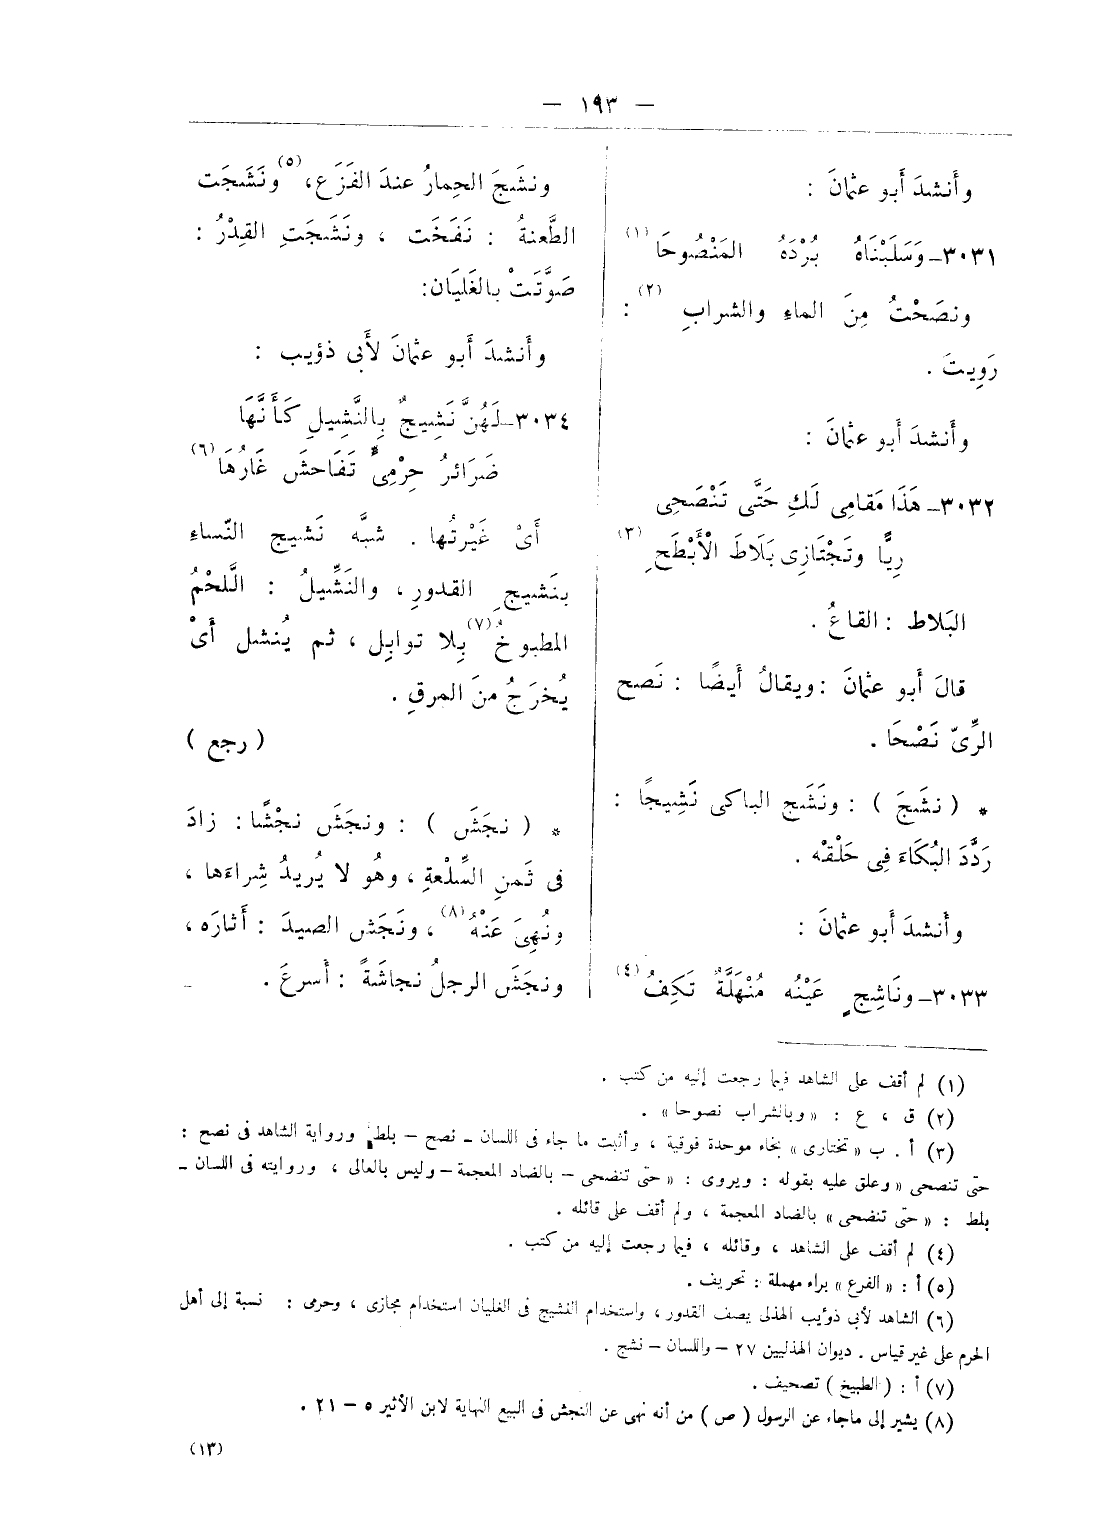 — ١٩٣ —
وأنشدَ أبو عثمانَ :
٣٠٣١ــ وَسَلَبْنَاهُ بُرْدَهُ المَنْصُوحَا (١)
ونصَحْتُ مِنَ الماءِ والشرابِ (٢) :
رَوِيتَ .
وأنشدَ أبو عثمانَ :
٣٠٣٢ــ هَذَا مَقامِى لَكِ حَتَّى تَنْصَحِى
رِيًّا وتَجْتَازِى بَلَاطَ الْأَبْطَحِ (٣)
البَلاط : القاعُ .
قالَ أبو عثمانَ : ويقالُ أيضًا : نَصح
الرِّىّ نَصْحَا .
* ( نشَجَ ) : ونَشَج الباكى نَشِيجًا :
رَدَّدَ البُكَاءَ فِى حَلْقْه .
وأنشدَ أبو عثمانَ :
٣٠٣٣ــ ونَاشِجٍ عَيْنُه مُنْهَلَّةٌ تَكِفُ (٤)
ونشَجَ الحِمارُ عندَ الفَزَع ، (٥) ونَشَجَت
الطَّعنةُ : نَفَخَت ، ونَشَجَتِ القِدْرُ :
صَوَّتَتْ بالغَلَيَان:
وأنشدَ أبو عثمانَ لأَبى ذؤيب :
٣٠٣٤ــ لَهُنَّ نَشِيجٌ بِالنَّشِيلِ كَأَنَّهَا
ضَرَائرُ حِرْمِىٍّ تَفَاحشَ غَارُهَا (٦)
أىْ غَيْرتُها . شبَّه نَشيج النّساءِ
بنَشيجِ القدورِ ، والنَشِّيلُ : الَّلحْمُ
المطبوخُ (٧) بِلا توابِل ، ثم يُنشل أىْ
يُخرَجُ منَ المرقِ .
( رجع )
* ( نجَشَ ) : ونجَش نجْشًا : زادَ
فى ثَمنِ السِّلْعةِ ، وهُو لا يُريدُ شِراءَها ،
ونُهِىَ عَنْهُ (٨) ، ونَجَش الصيدَ : أثارَه ،
ونجَشَ الرجلُ نجاشَةً : أسرعَ .
(١) لم أقف على الشاهد فيما رجعت إليه من كتب .
(٢) ق ، ع : « وبالشراب نصوحا » .
(٣) أ . ب « تختارى » بخاء موحدة فوقية ، وأثبت ما جاء فى اللسان ــ نصح – بلط ورواية الشاهد فى نصح :
حتى تنصحى « وعلق عليه بقوله : ويروى : « حتى تنضحى – بالضاد المعجمة – وليس بالعالى ، وروايته فى اللسان ــ
بلط : « حتى تنضحى » بالضاد المعجمة ، ولم أقف على قائله .
(٤) لم أقف على الشاهد ، وقائله ، فيما رجعت إليه من كتب .
(٥) أ : « الفرع » براء مهملة : تحريف .
(٦) الشاهد لأبى ذؤيب الهذلى يصف القدور ، واستخدام النشيج فى الغليان استخدام مجازى ، وحرمى : نسبة إلى أهل
الحرم على غير قياس . ديوان الهذليين ٢٧ – واللسان – نشج .
(٧) أ : ( الطبيخ ) تصحيف .
(٨) يشير إلى ماجاء عن الرسول ( ص ) من أنه نهى عن النجش فى البيع النهاية لابن الأثير ٥ – ٢١ .
(١٣)